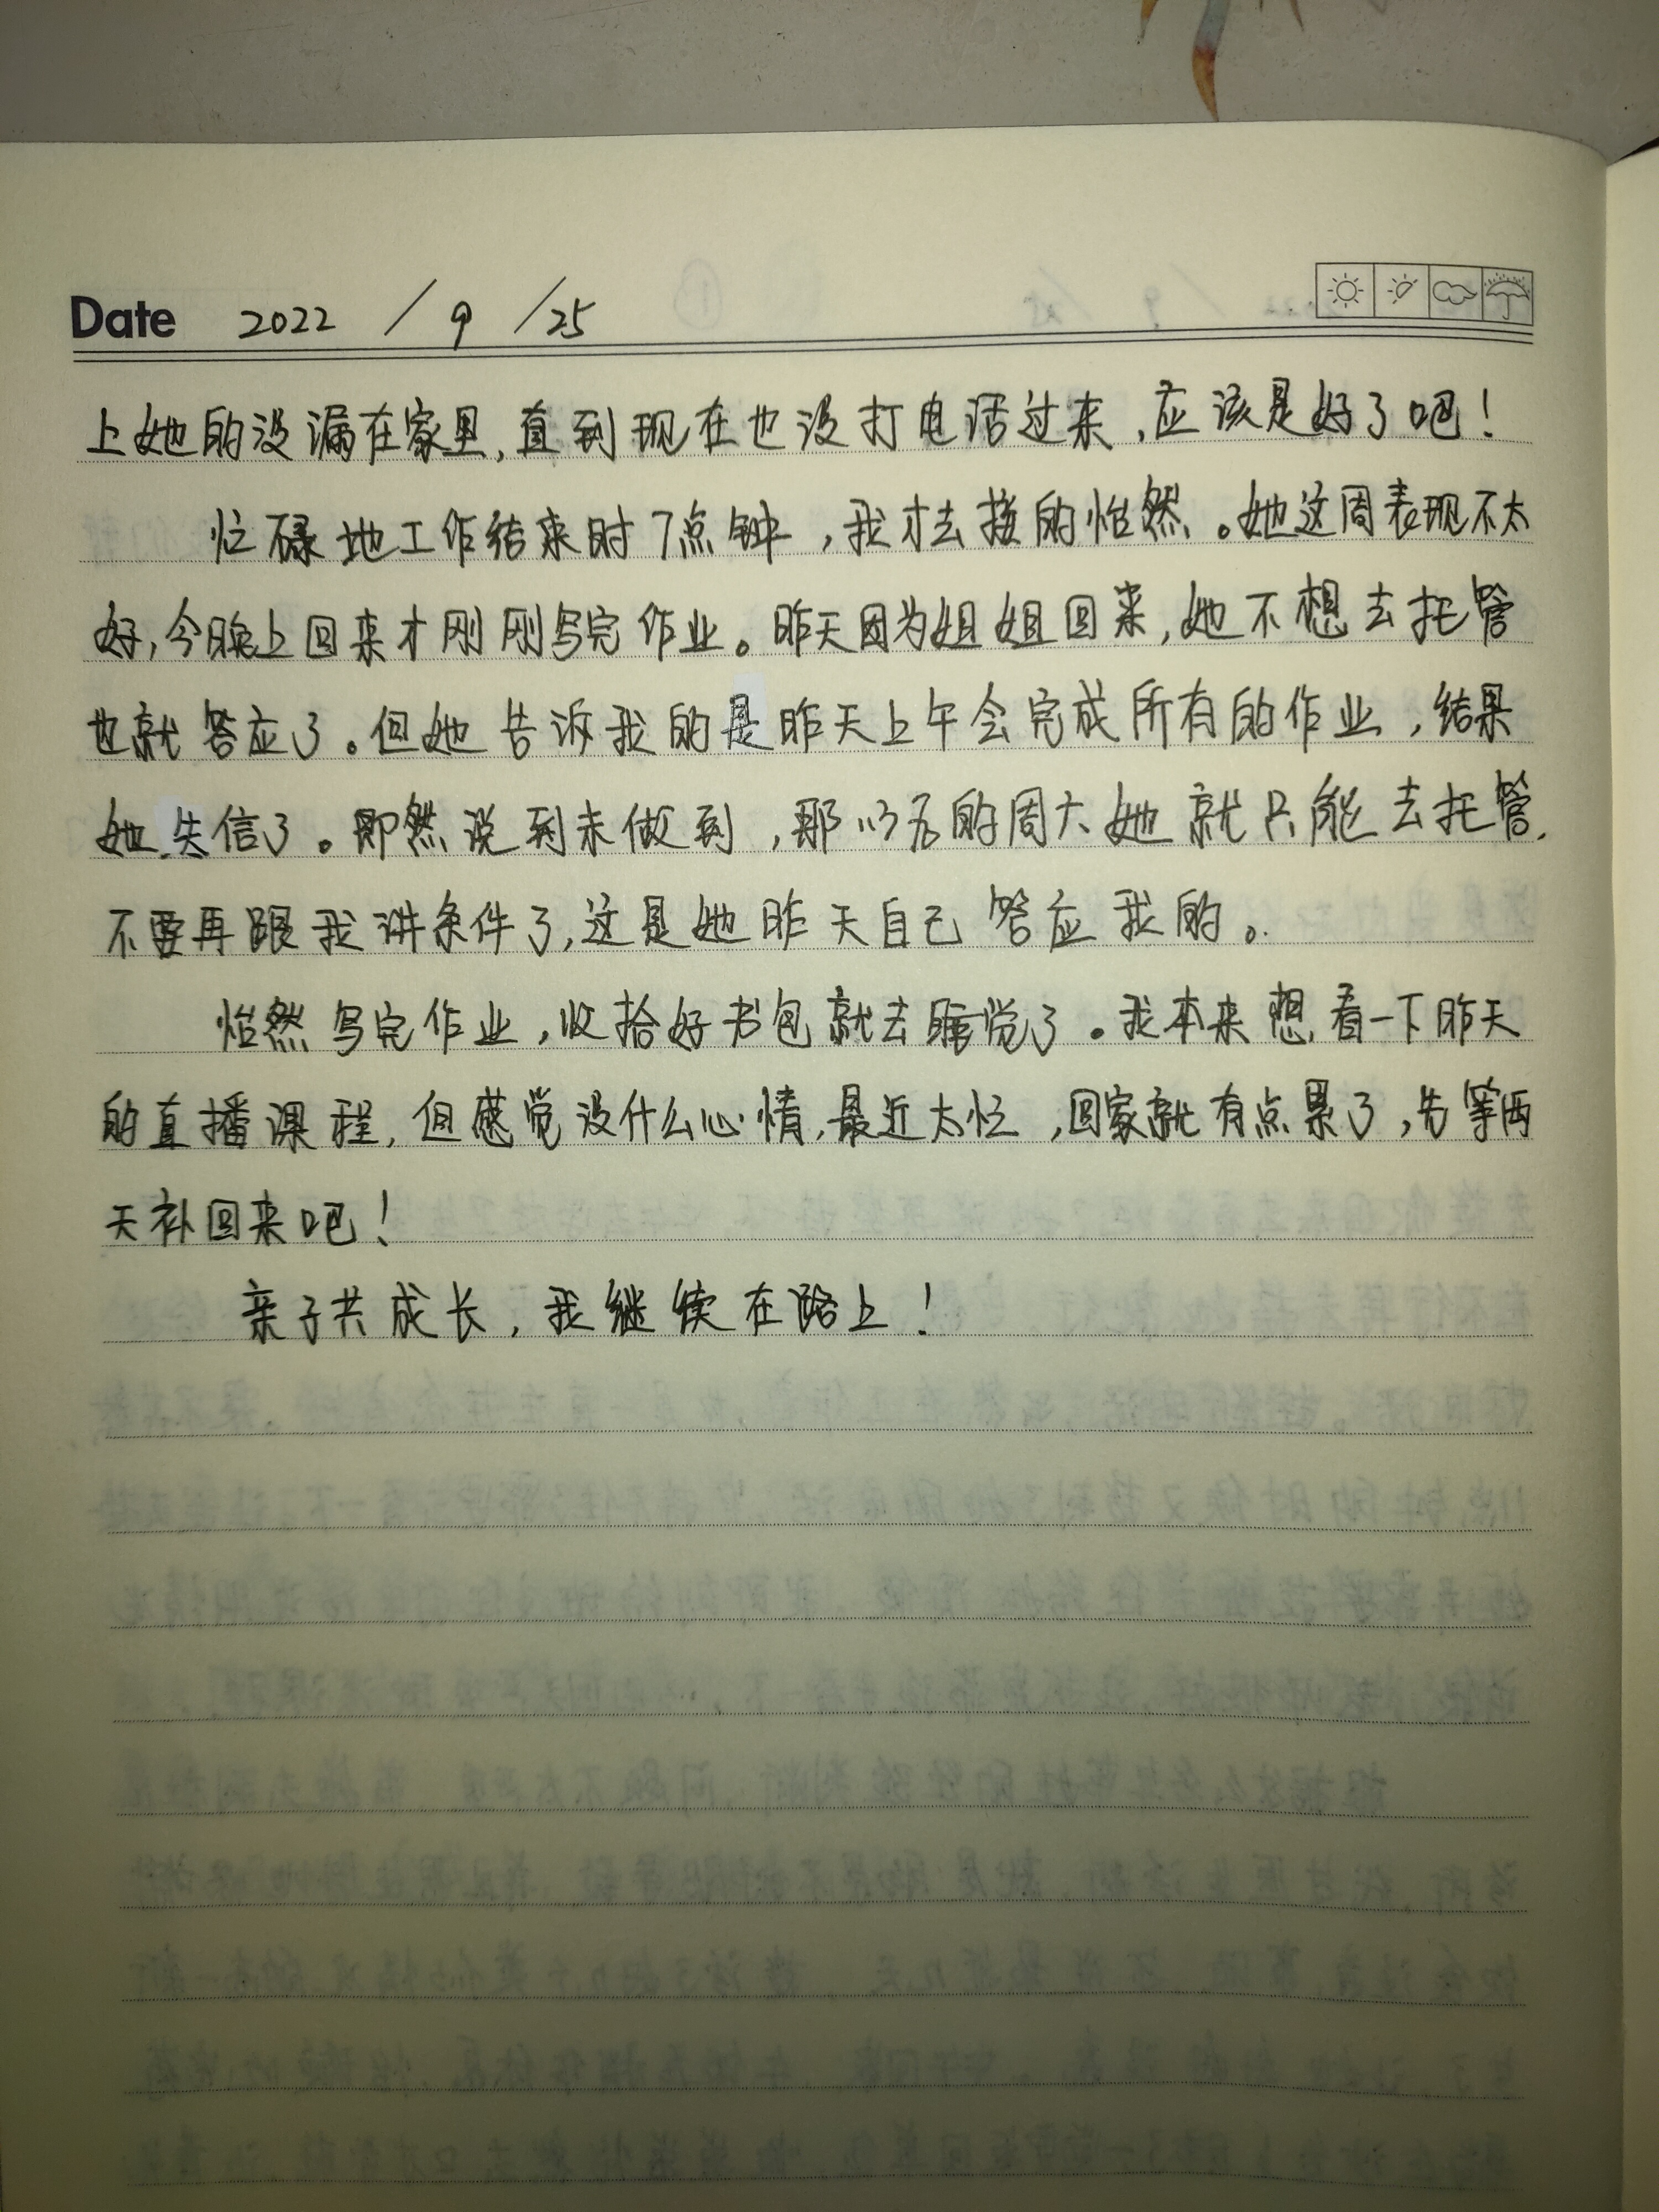 Date 2022 / 9 / 25
上她的没漏在家里,直到现在也没打电话过来,应该是好了吧!
忙碌地工作结束时7点钟,我才去接的怡然。她这周表现不太
好,今晚上回来才刚刚写完作业。昨天因为姐姐回来,她不想去托管
也就答应了。但她告诉我的是昨天上午会完成所有的作业,结果
她失信了。即然说到未做到,那以后的周六她就只能去托管,
不要再跟我讲条件了,这是她昨天自己答应我的。
怡然写完作业,收拾好书包就去睡觉了。我本来想看一下昨天
的直播课程,但感觉没什么心情,最近太忙,回家就有点累了,先等两
天补回来吧!
亲子共成长,我继续在路上!